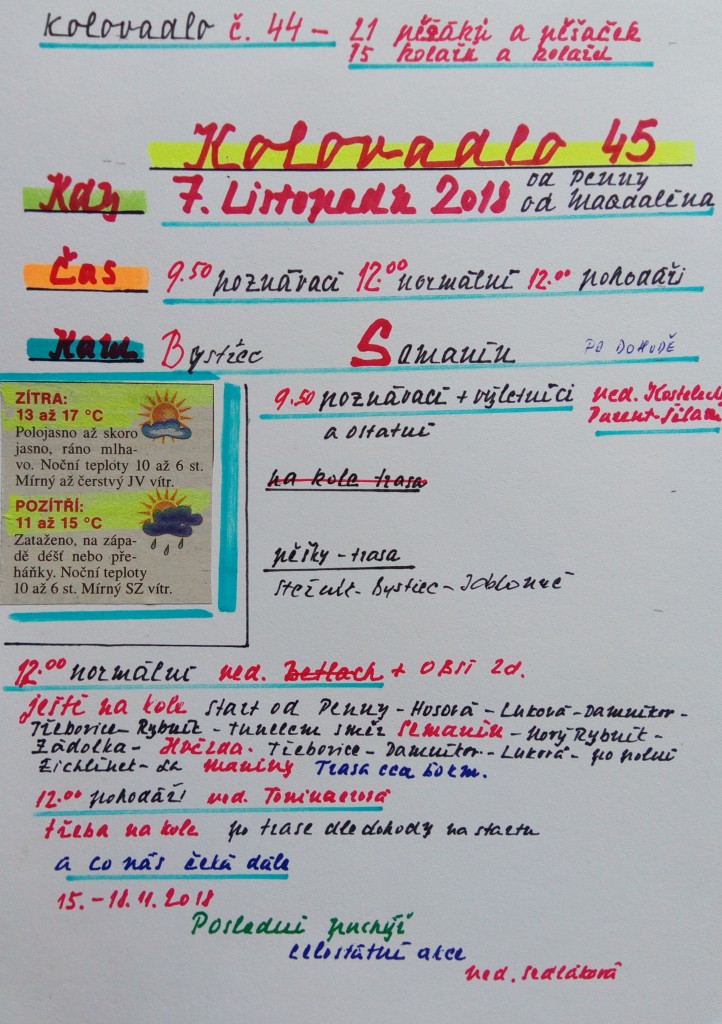 Kolovadlo č. 44 – 21 pěšáků a pěšaček
15 kolařů a kolařek
Kolovadlo 45
Kdy 7. Listopadu 2018 od Penny
od Magdaléna
Čas 9.50 poznávací 12.00 normální 12.00 pohodáři
Kam Bystřec Semanín PO DOHODĚ
ZÍTRA:
13 až 17 °C
Polojasno až skoro
jasno, ráno mlha-
vo. Noční teploty 10 až 6 st.
Mírný až čerstvý JV vítr.
POZÍTŘÍ:
11 až 15 °C
Zataženo, na zápa-
dě déšť nebo pře-
háňky. Noční teploty
10 až 6 st. Mírný SZ vítr.
9.50 poznávací + výletníci ved. Kostelecký
a ostatní
na kole trasa
pěšky – trasa
Bystřec – Jablonné
12.00 normální ved. Betlach + OBŠÍ 2d.
ještě na kole start od Penny – Hosová – Luková – Damníkov –
Třebovice – Rybník – tunelem směr Semanín – Nový Rybník –
Zádolka – Hvězda – Třebovice – Damníkov – Luková – po polní
Žichlínek – LA maniny Trasa cca 60 km.
12.00 pohodáři ved.
třeba na kole po trase dle dohody na startu
a co nás čeká dále
15. – 18. 11. 2018
Poslední puchýř
celostátní akce
ved. Sedláková